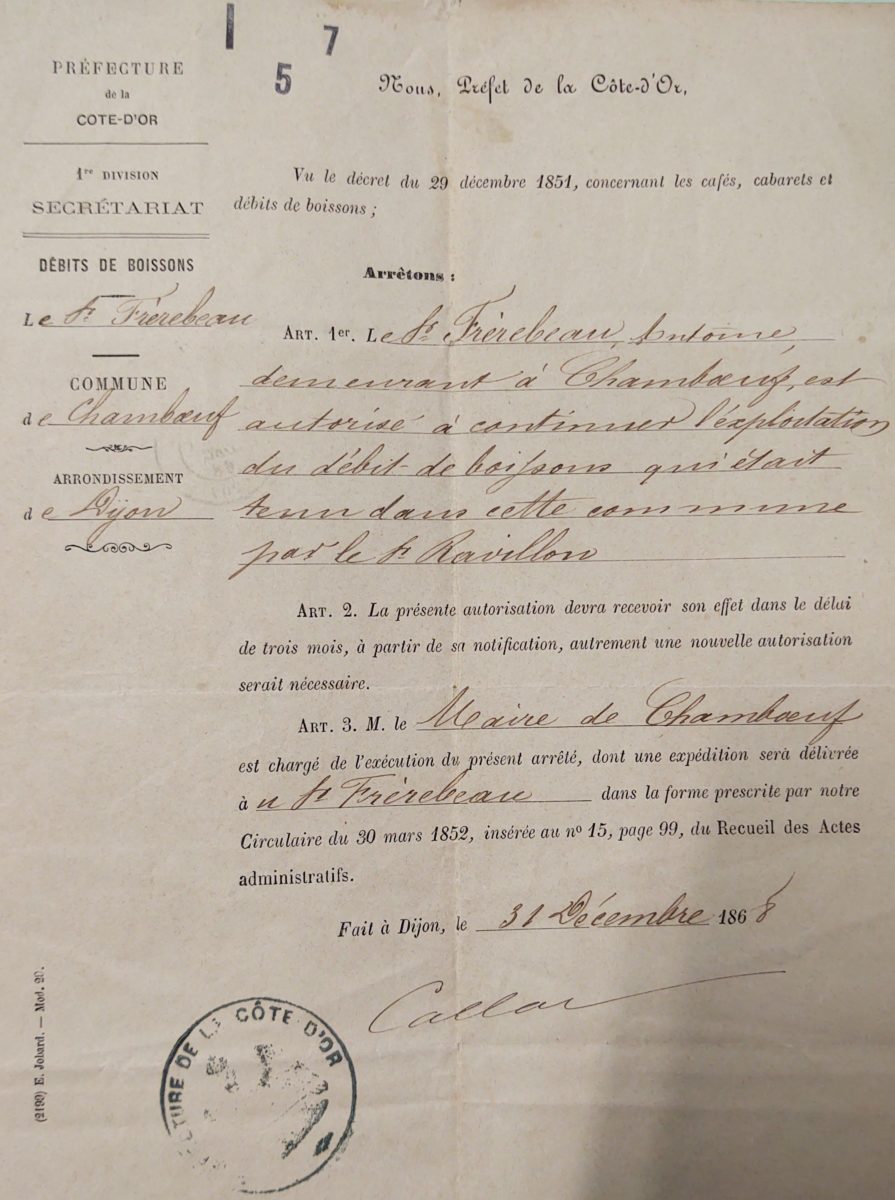 7
5
PRÉFECTURE
de la
COTE-D'OR
1re DIVISION
SECRÉTARIAT
DÉBITS DE BOISSONS
Le Sr Frérebeau
COMMUNE
de Chambœuf
ARRONDISSEMENT
de Dijon
Nous, Préfet de la Côte-d'Or,
Vu le décret du 29 décembre 1851, concernant les cafés, cabarets et
débits de boissons ;
Arrêtons :
ART. 1er. Le Sr Frérebeau, Antoine,
demeurant à Chambœuf, est
autorisé à continuer l'exploitation
du débit de boissons qui était
tenu dans cette commune
par le Sr Ravillon
ART. 2. La présente autorisation devra recevoir son effet dans le délai
de trois mois, à partir de sa notification, autrement une nouvelle autorisation
serait nécessaire.
ART. 3. M. le Maire de Chambœuf
est chargé de l'exécution du présent arrêté, dont une expédition sera délivrée
à u Sr Frérebeau dans la forme prescrite par notre
Circulaire du 30 mars 1852, insérée au no 15, page 99, du Recueil des Actes
administratifs.
Fait à Dijon, le 31 Décembre 1868
CTURE DE LA CÔTE D'OR
(2199) E. Jobard. — Mod. 20.